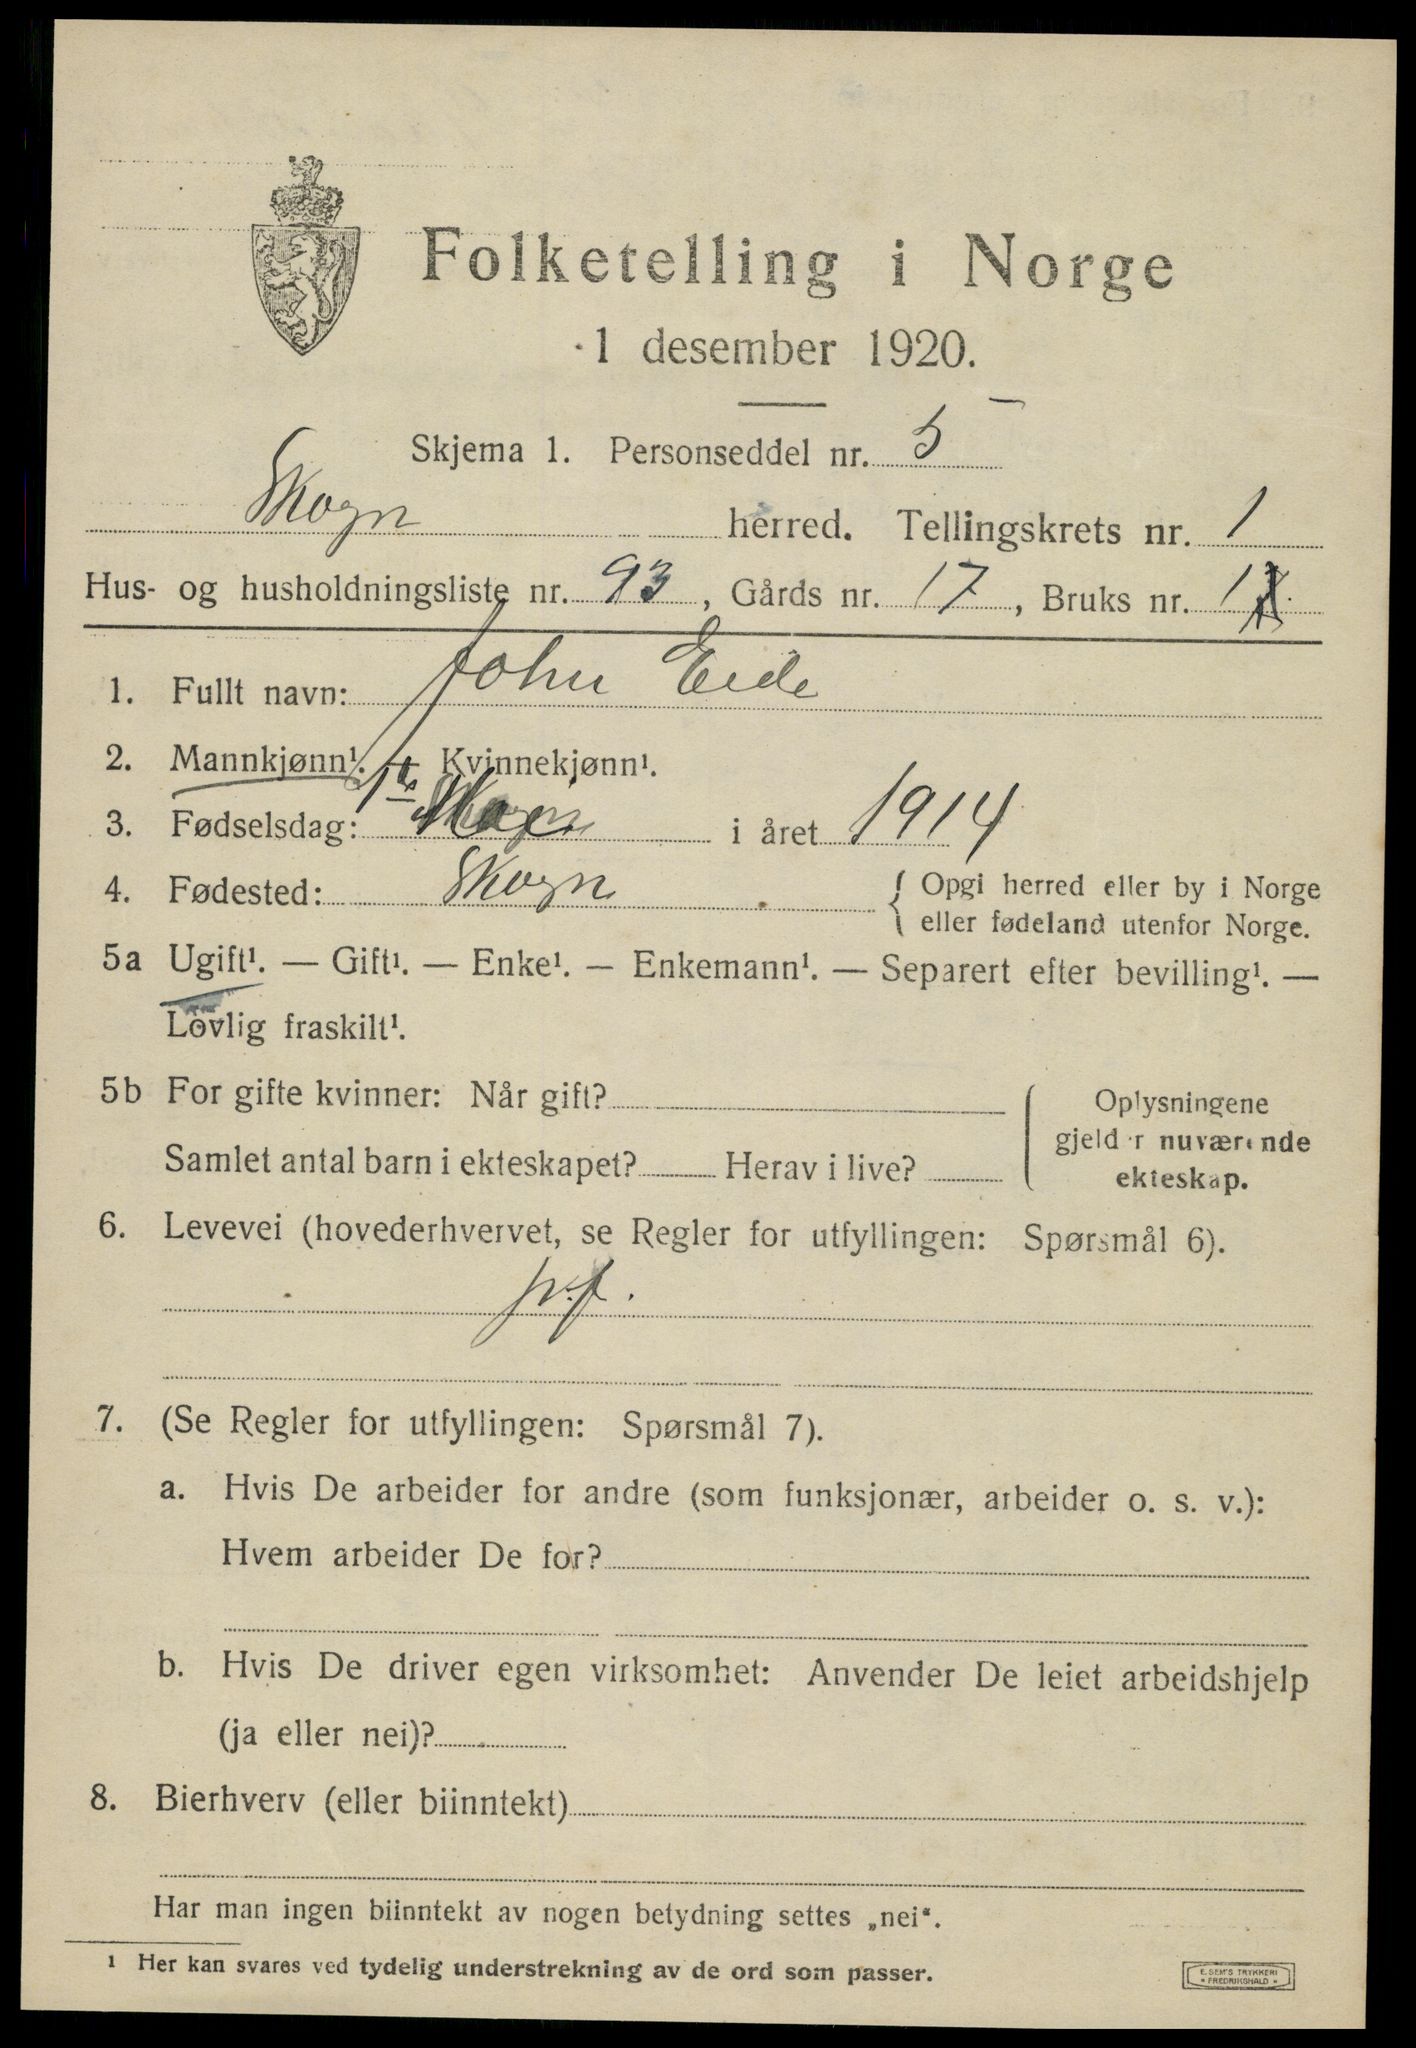 Folketelling i Norge
1 desember 1920.
Skjema 1. Personseddel nr. 5
Skogn herred. Tellingskrets nr. 1
Hus- og husholdningsliste nr. 93, Gårds nr. 17, Bruks nr. 1
1. Fullt navn: John Eide
2. Mannkjønn¹. — Kvinnekjønn¹.
3. Fødselsdag: 1ste Mai i året 1914
4. Fødested: Skogn { Opgi herred eller by i Norge
eller fødeland utenfor Norge.
5a Ugift¹. — Gift¹. — Enke¹. — Enkemann¹. — Separert efter bevilling¹. —
Lovlig fraskilt¹.
5b For gifte kvinner: Når gift?
Samlet antal barn i ekteskapet? Herav i live?
Oplysningene
gjelder nuværende
ekteskap.
6. Levevei (hovederhvervet, se Regler for utfyllingen: Spørsmål 6).
7. (Se Regler for utfyllingen: Spørsmål 7).
a. Hvis De arbeider for andre (som funksjonær, arbeider o. s. v.):
Hvem arbeider De for?
b. Hvis De driver egen virksomhet: Anvender De leiet arbeidshjelp
(ja eller nei)?
8. Bierhverv (eller biinntekt)
Har man ingen biinntekt av nogen betydning settes „nei“.
¹ Her kan svares ved tydelig understrekning av de ord som passer.
E. SEM'S TRYKKERI
FREDRIKSHALD